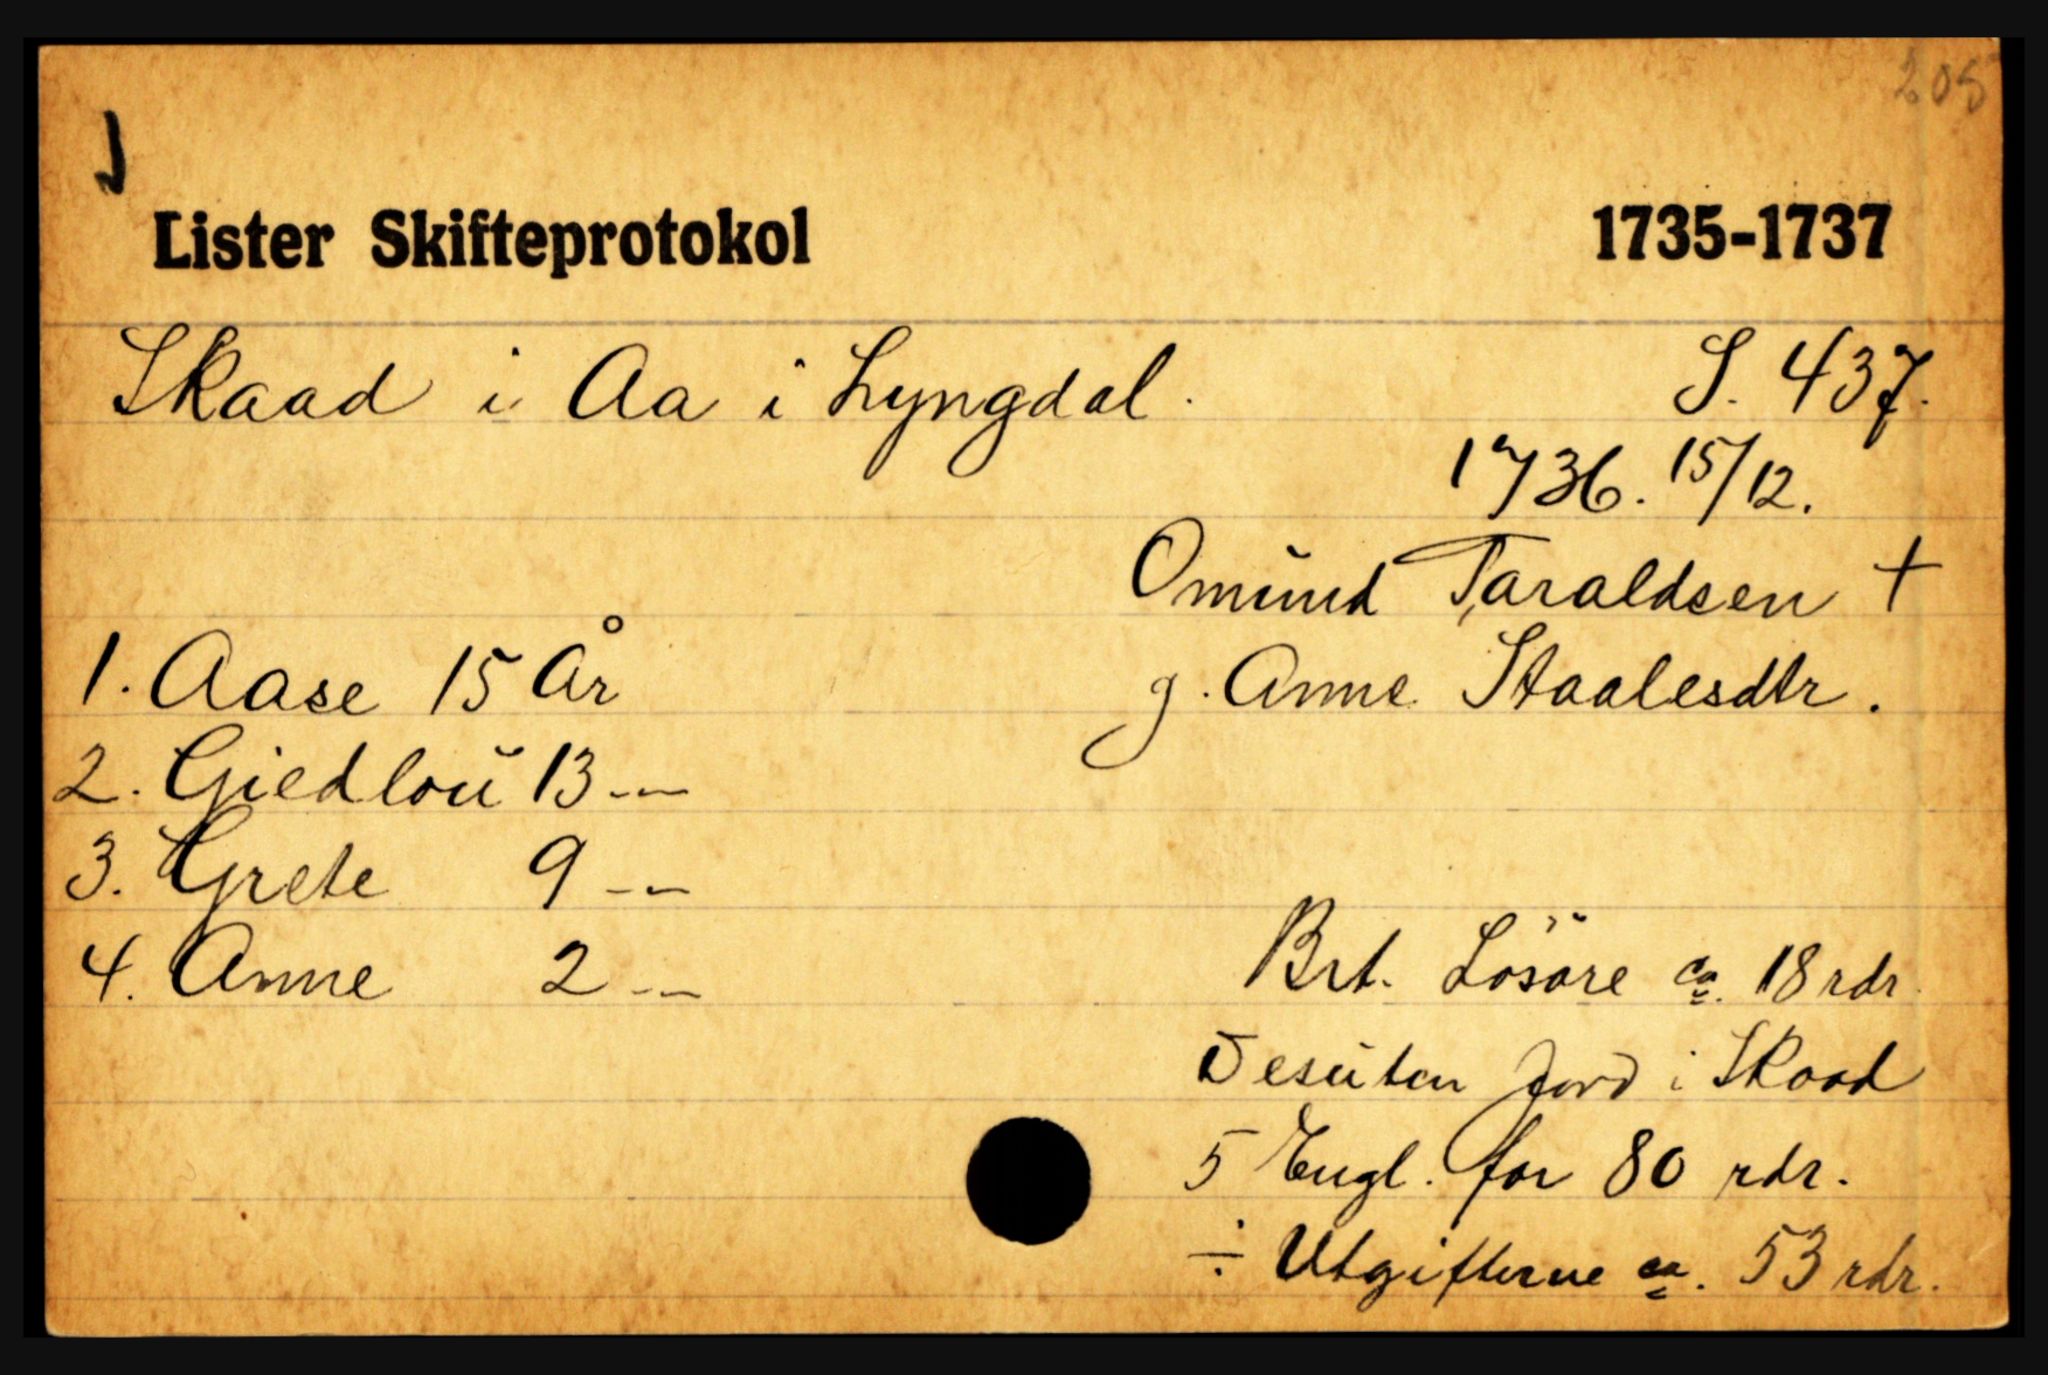 205
J
Lister Skifteprotokol 1735-1737
Skaad i Aa i Lyngdal. S. 437.
1736. 15/12.
Omŭnd Taraldsen +
1. Aase 15 År g. Anne Staalesdtr.
2. Giedloŭ 13 -"-
3. Grete 9 -"-
4. Anne 2 -"- Brt. Lösöre ca. 18 rdr.
Desŭten Jord i Skaad
5 Engl. for 80 rdr.
÷ Utgifterne ca. 53 rdr.